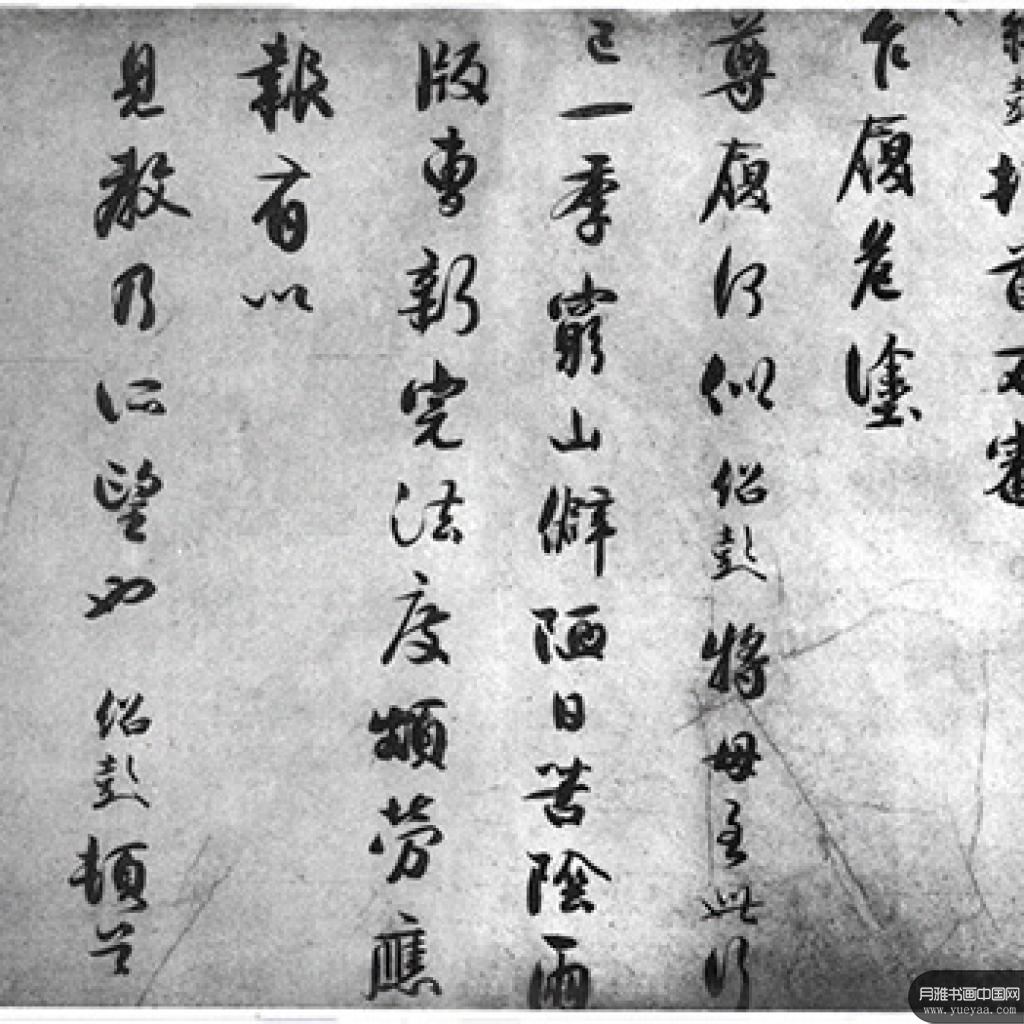 紹彭拜首不審
乍履危塗
尊履何似紹彭將母至此行
已一季窮山僻陋日苦陰雨
版曹新完法度頗勞應
報有以
見教乃所望也紹彭頓首
月雅书画中国网
www.yueyaa.com